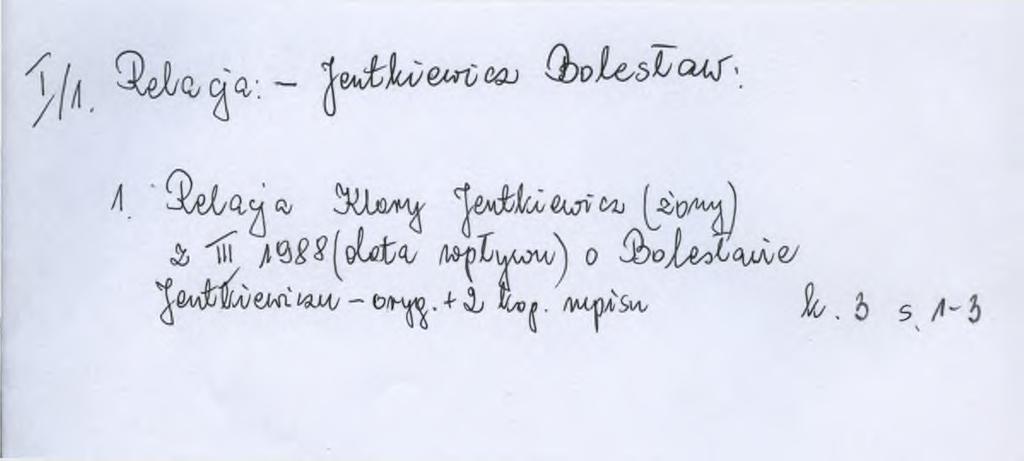 I/1. Relacja: - Jentkiewicz Bolesław:
1. Relacja Klary Jentkiewicz (żony)
z III 1988 (data wpływu) o Bolesławie
Jentkiewiczu - oryg. + 2 kop. mpisu k. 3 s. 1-3